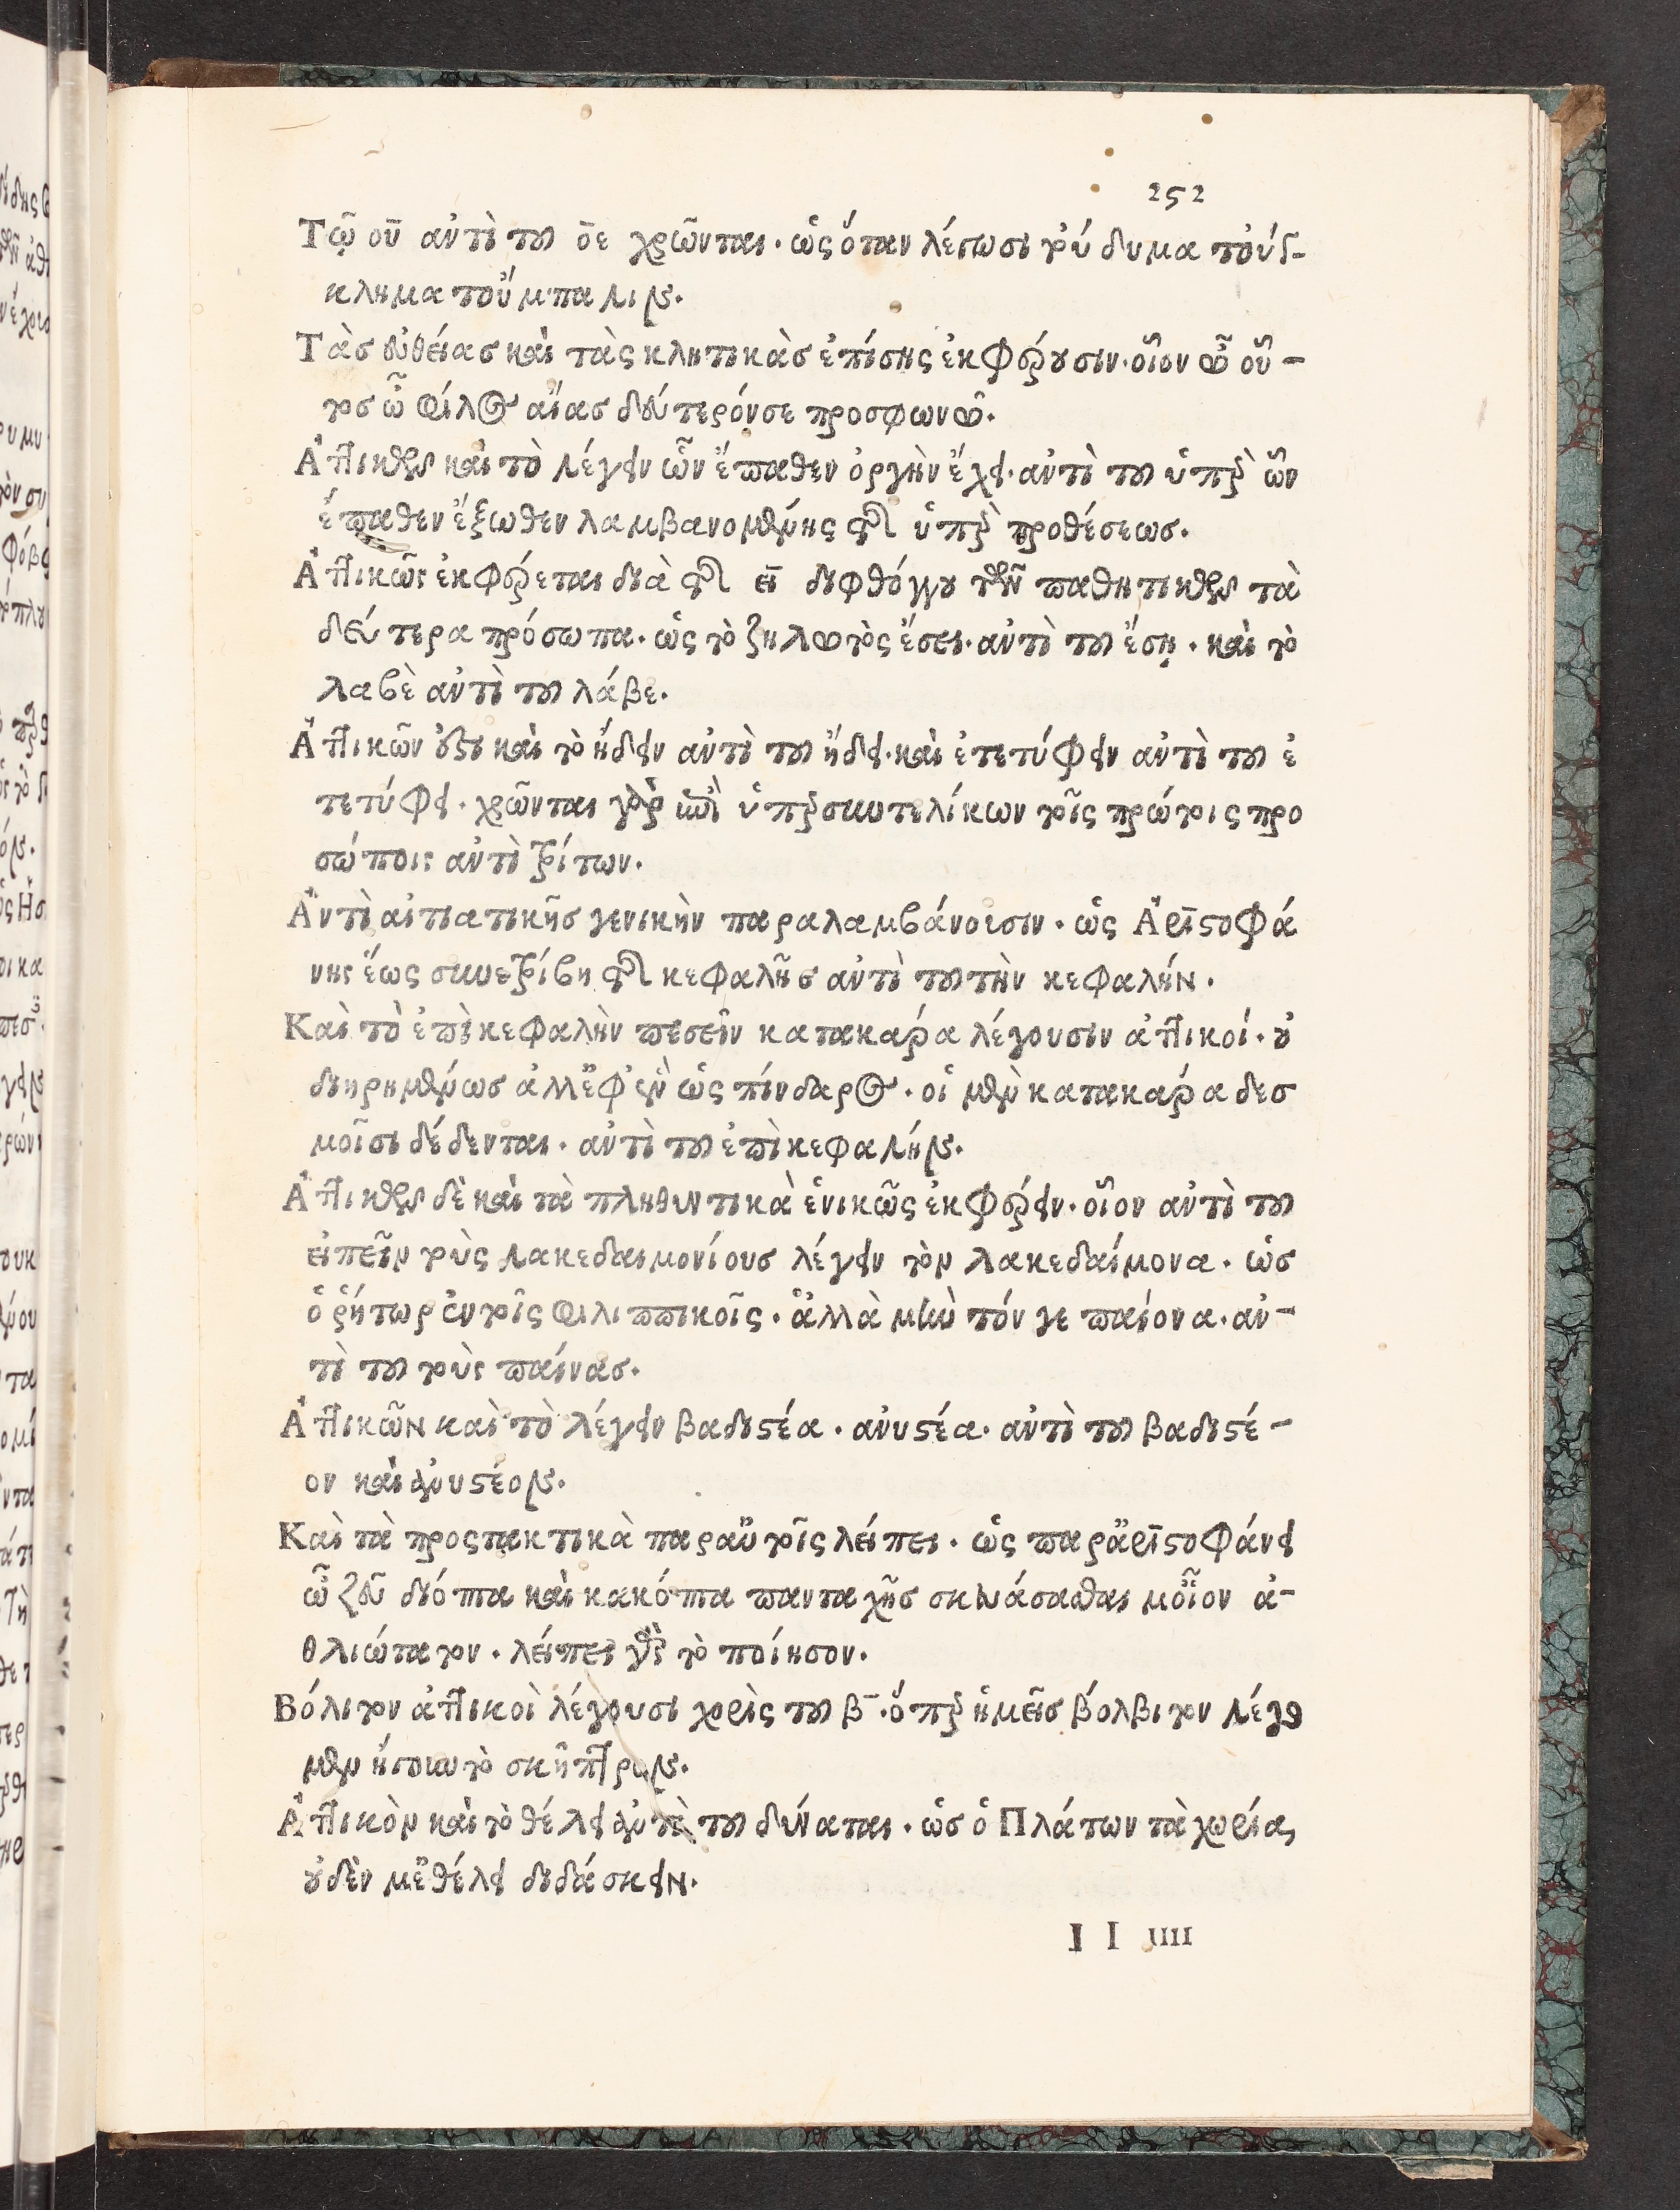 252
Τῷ οῦ ἀντὶ τοῦ οε χρῶνται. ὡς ὅταν λέγωσι τοὔδυμα τοὔγ-
κλημα τοὔμπαλιν.
Τὰσ εὐθείασ καὶ τὰς κλητικὰσ ἐπίσης ἐκφέρουσιν. οἷον ὦ οὗ-
τοσ ὦ φίλος αἴας δεύτερόνσε προσφωνῶ.
Ἀττικὸν καὶ τὸ λέγειν ὧν ἔπαθεν ὀργὴν ἔχει. ἀντὶ τοῦ ὑπὲρ ὧν
ἔπαθεν ἔξωθεν λαμβανομένης τῆς ὑπὲρ προθέσεωσ.
Ἀττικῶς ἐκφέρεται διὰ τῆς ει διφθόγγου τῶν παθητικῶν τὰ
δεύτερα πρόσωπα. ὡς τὸ ζηλωτὸς ἔσει. ἀντὶ τοῦ ἔσῃ. καὶ τὸ
λαβὲ ἀντὶ τοῦ λάβε.
Ἀττικῶν ἐστι καὶ τὸ ᾔδειν ἀντὶ τοῦ ᾔδει. καὶ ἐτετύφειν ἀντὶ τοῦ ἐ
τετύφει. χρῶνται γὰρ ἐπὶ ὑπερσυντελίκων τοῖς πρώτοις προ
σώποις ἀντὶ τρίτων.
Ἀντὶ αἰτιατικῆσ γενικὴν παραλαμβάνουσιν. ὡς Ἀριστοφά
νης ἕως συνετρίβη τῆς κεφαλῆσ ἀντὶ τοῦ τὴν κεφαλήν.
Καὶ τὸ ἐπὶ κεφαλὴν πεσεῖν κατακάρα λέγουσιν ἀττικοί. οὐ
διηρημένωσ ἀλλ' ἐφ' ἑν ὡς πίνδαρος. οἱ μὲν κατακάρα δεσ
μοῖσι δέδενται. ἀντὶ τοῦ ἐπὶ κεφαλήν.
Ἀττικὸν δὲ καὶ τὰ πληθυντικὰ ἑνικῶς ἐκφέρειν. οἷον ἀντὶ τοῦ
εἰπεῖν τοὺς λακεδαιμονίουσ λέγειν τὸν λακεδαίμονα. ὡσ
ὁ ῥήτωρ ἐν τοῖς φιλιππικοῖς. ἀλλὰ μὴν τόν γε παίονα. ἀν-
τὶ τοῦ τοὺς παίνασ.
Ἀττικῶν καὶ τὸ λέγειν βαδιστέα. ἀνυστέα. ἀντὶ τοῦ βαδιστέ-
ον καὶ ἀνυστέον.
Καὶ τὰ προςτακτικὰ παρ' αὐτοῖς λείπει. ὡς παρ' ἀριστοφάνει
ὦ ζεῦ διόπτα καὶ κακόπτα πανταχῆσ σκευάσασθαι μ' οἷον ἀ-
θλιώτατον. λείπει γὰρ τὸ ποίησον.
Βόλιτον ἀττικοὶ λέγουσι χωρὶς τοῦ β̄. ὅπερ ἡμεῖσ βόλβιτον λέγο
μεν ἤγουν τὸ σκῆπτρον.
Ἀττικὸν καὶ τὸ θέλει ἀντὶ τοῦ δύναται. ὡσ ὁ Πλάτων τὰ χωρία,
οὐδέν μ' ἐθέλει διδάσκειν.
I I IIII